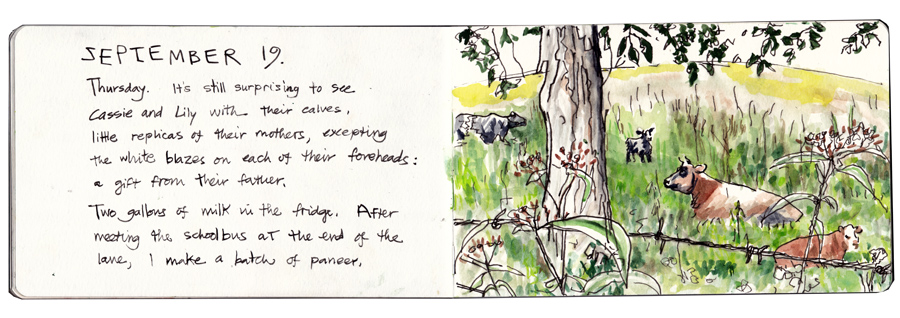 SEPTEMBER 19.
Thursday. It's still surprising to see
Cassie and Lily with their calves.
little replicas of their mothers, excepting
the white blazes on each of their foreheads:
a gift from their father.
Two gallons of milk in the fridge. After
meeting the schoolbus at the end of the
lane, I make a batch of paneer.